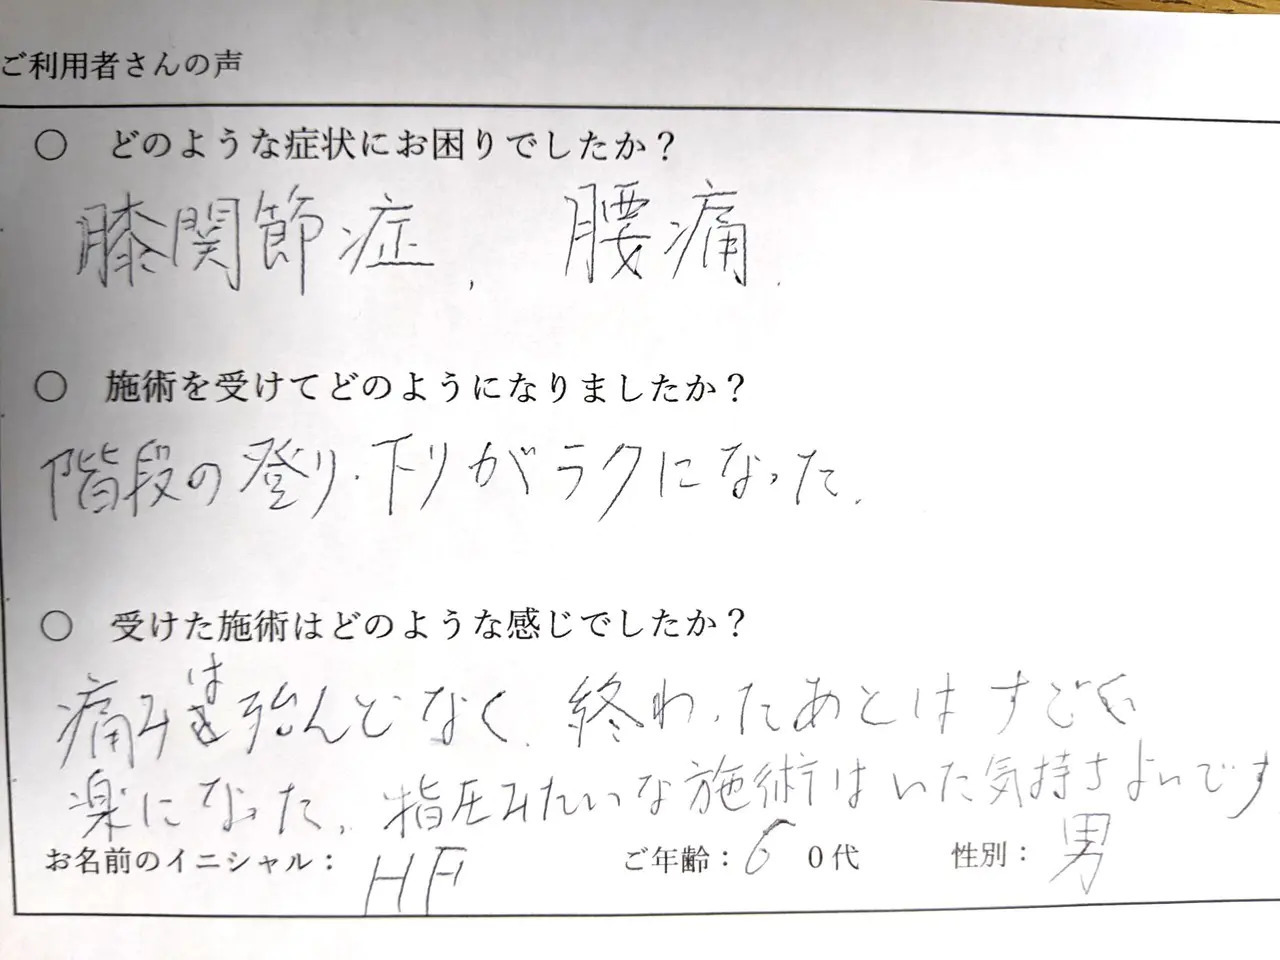 ご利用者さんの声
○ どのような症状にお困りでしたか？
膝関節症、 腰痛.
○ 施術を受けてどのようになりましたか？
階段の登り・下りがラクになった.
○ 受けた施術はどのような感じでしたか？
痛みは殆んどなく、終わったあとはすごく
楽になった、指圧みたいな施術はいた気持ちよいです
お名前のイニシャル： HF ご年齢：6 0代 性別： 男